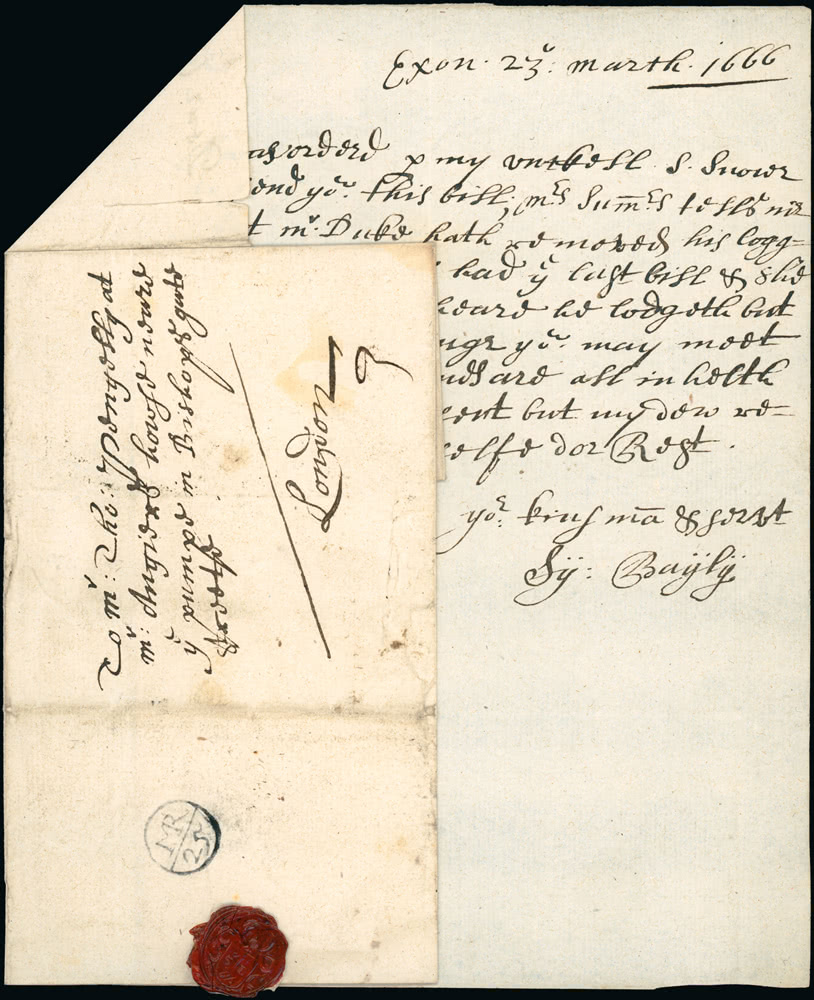 Exon. 23th: march. 1666
as orderd p my vnckell S. Snow
send yor. this bill; mrs Summrs tells me
t mr. Duke hath removed his logg=
had ye last bill & she
heare he lodgeth but
yor. may meet
are all in helth
but my dew re=
selfe dor Rest.
yor. kinsmā & servt
Sy: Bayly
To mr: Tho: Pengelly at
mr: Angiers howse neare
ye pumpe in Bishopsgate
streete
London
MR
25